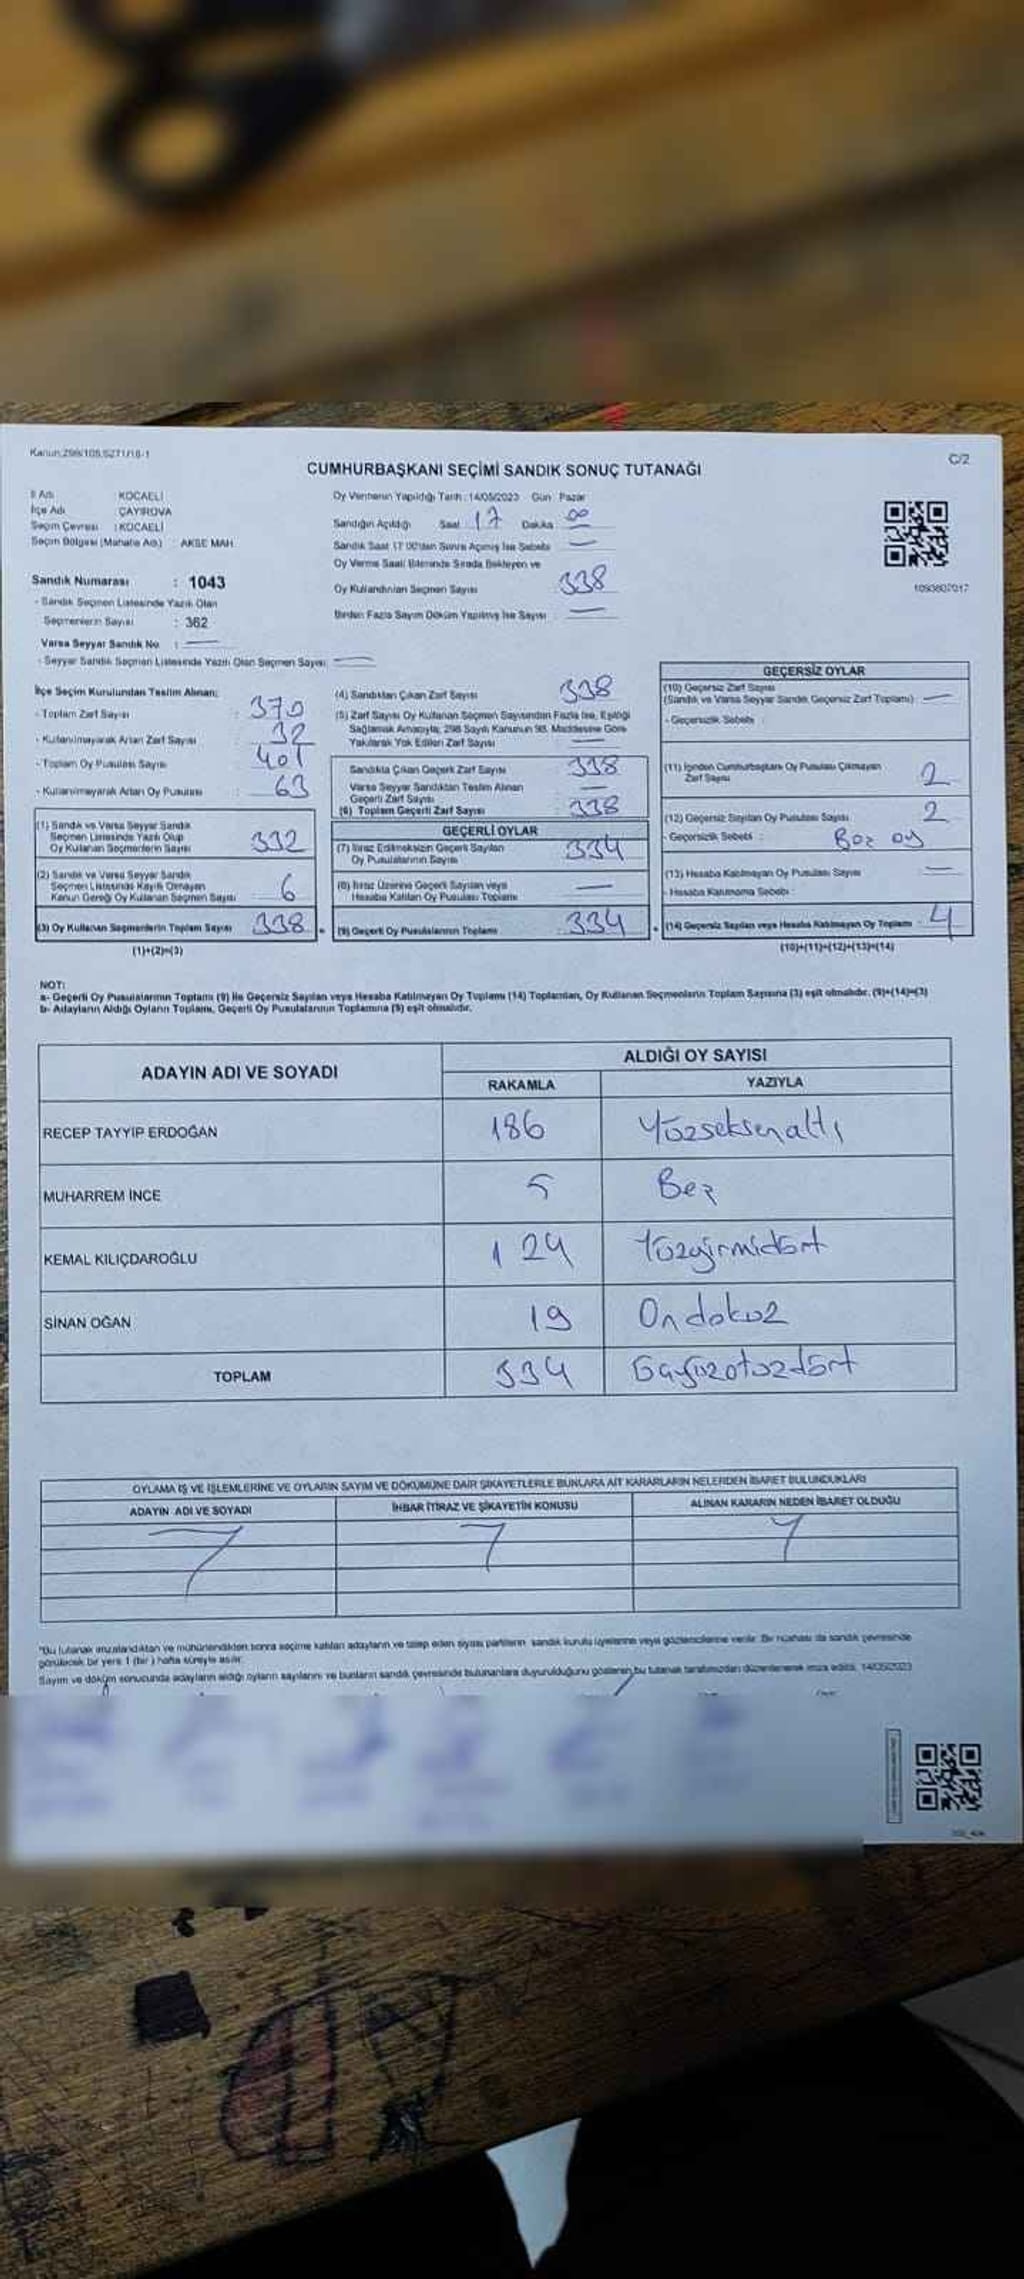 Kanun:298/105,5271/16-1
C/2
CUMHURBAŞKANI SEÇİMİ SANDIK SONUÇ TUTANAĞI
İl Adı : KOCAELİ
İlçe Adı : ÇAYIROVA
Seçim Çevresi : KOCAELİ
Seçim Bölgesi (Mahalle Adı) : AKSE MAH.
Oy Vermenin Yapıldığı Tarih : 14/05/2023 Gün Pazar
Sandığın Açıldığı Saat : 17 Dakika 00
Sandık Saat 17:00'dan Sonra Açılmış İse Sebebi —
Oy Verme Saati Bitiminde Sırada Bekleyen ve
Oy Kullandırılan Seçmen Sayısı 338
Birden Fazla Sayım Döküm Yapılmış İse Sayısı —
1093807017
Sandık Numarası : 1043
- Sandık Seçmen Listesinde Yazılı Olan
Seçmenlerin Sayısı : 362
Varsa Seyyar Sandık No : —
- Seyyar Sandık Seçmen Listesinde Yazılı Olan Seçmen Sayısı: —
İlçe Seçim Kurulundan Teslim Alınan;
- Toplam Zarf Sayısı : 370
- Kullanılmayarak Artan Zarf Sayısı : 32
- Toplam Oy Pusulası Sayısı : 401
- Kullanılmayarak Artan Oy Pusulası : 63
(1) Sandık ve Varsa Seyyar Sandık
Seçmen Listesinde Yazılı Olup
Oy Kullanan Seçmenlerin Sayısı 332
(2) Sandık ve Varsa Seyyar Sandık
Seçmen Listesinde Kayıtlı Olmayan
Kanun Gereği Oy Kullanan Seçmen Sayısı 6
(3) Oy Kullanan Seçmenlerin Toplam Sayısı 338
(1)+(2)=(3)
(4) Sandıktan Çıkan Zarf Sayısı 338
(5) Zarf Sayısı Oy Kullanan Seçmen Sayısından Fazla İse, Eşitliği
Sağlamak Amacıyla; 298 Sayılı Kanunun 98. Maddesine Göre
Yakılarak Yok Edilen Zarf Sayısı —
Sandıkta Çıkan Geçerli Zarf Sayısı 338
Varsa Seyyar Sandıktan Teslim Alınan
Geçerli Zarf Sayısı —
(6) Toplam Geçerli Zarf Sayısı 338
GEÇERLİ OYLAR
(7) İtiraz Edilmeksizin Geçerli Sayılan
Oy Pusulalarının Sayısı 334
(8) İtiraz Üzerine Geçerli Sayılan veya
Hesaba Katılan Oy Pusulası Toplamı —
(9) Geçerli Oy Pusulalarının Toplamı 334
GEÇERSİZ OYLAR
(10) Geçersiz Zarf Sayısı
(Sandık ve Varsa Seyyar Sandık Geçersiz Zarf Toplamı) —
- Geçersizlik Sebebi :
(11) İçinden Cumhurbaşkanı Oy Pusulası Çıkmayan
Zarf Sayısı 2
(12) Geçersiz Sayılan Oy Pusulası Sayısı 2
- Geçersizlik Sebebi : Boz oy
(13) Hesaba Katılmayan Oy Pusulası Sayısı —
- Hesaba Katılmama Sebebi :
(14) Geçersiz Sayılan veya Hesaba Katılmayan Oy Toplamı 4
(10)+(11)+(12)+(13)=(14)
NOT:
a- Geçerli Oy Pusulalarının Toplamı (9) ile Geçersiz Sayılan veya Hesaba Katılmayan Oy Toplamı (14) Toplamları, Oy Kullanan Seçmenlerin Toplam Sayısına (3) eşit olmalıdır. (9)+(14)=(3)
b- Adayların Aldığı Oyların Toplamı, Geçerli Oy Pusulalarının Toplamına (9) eşit olmalıdır.
ADAYIN ADI VE SOYADI
ALDIĞI OY SAYISI
RAKAMLA YAZIYLA
RECEP TAYYİP ERDOĞAN 186 Yüzseksenaltı
MUHARREM İNCE 5 Beş
KEMAL KILIÇDAROĞLU 124 Yüzyirmidört
SİNAN OĞAN 19 Ondokuz
TOPLAM 334 Üçyüzotuzdört
OYLAMA İŞ VE İŞLEMLERİNE VE OYLARIN SAYIM VE DÖKÜMÜNE DAİR ŞİKAYETLERLE BUNLARA AİT KARARLARIN NELERDEN İBARET BULUNDUKLARI
ADAYIN ADI VE SOYADI İHBAR İTİRAZ VE ŞİKAYETİN KONUSU ALINAN KARARIN NEDEN İBARET OLDUĞU
"Bu tutanak imzalandıktan ve mühürlendikten sonra seçime katılan adayların ve talep eden siyasi partilerin sandık kurulu üyelerine veya gözlemcilerine verilir. Bir nüshası da sandık çevresinde
görülecek bir yere 1 (bir) hafta süreyle asılır.
Sayım ve döküm sonucunda adayların aldığı oyların sayılarını ve bunların sandık çevresinde bulunanlara duyurulduğunu gösteren bu tutanak tarafımızdan düzenlenerek imza edildi. 14/05/2023